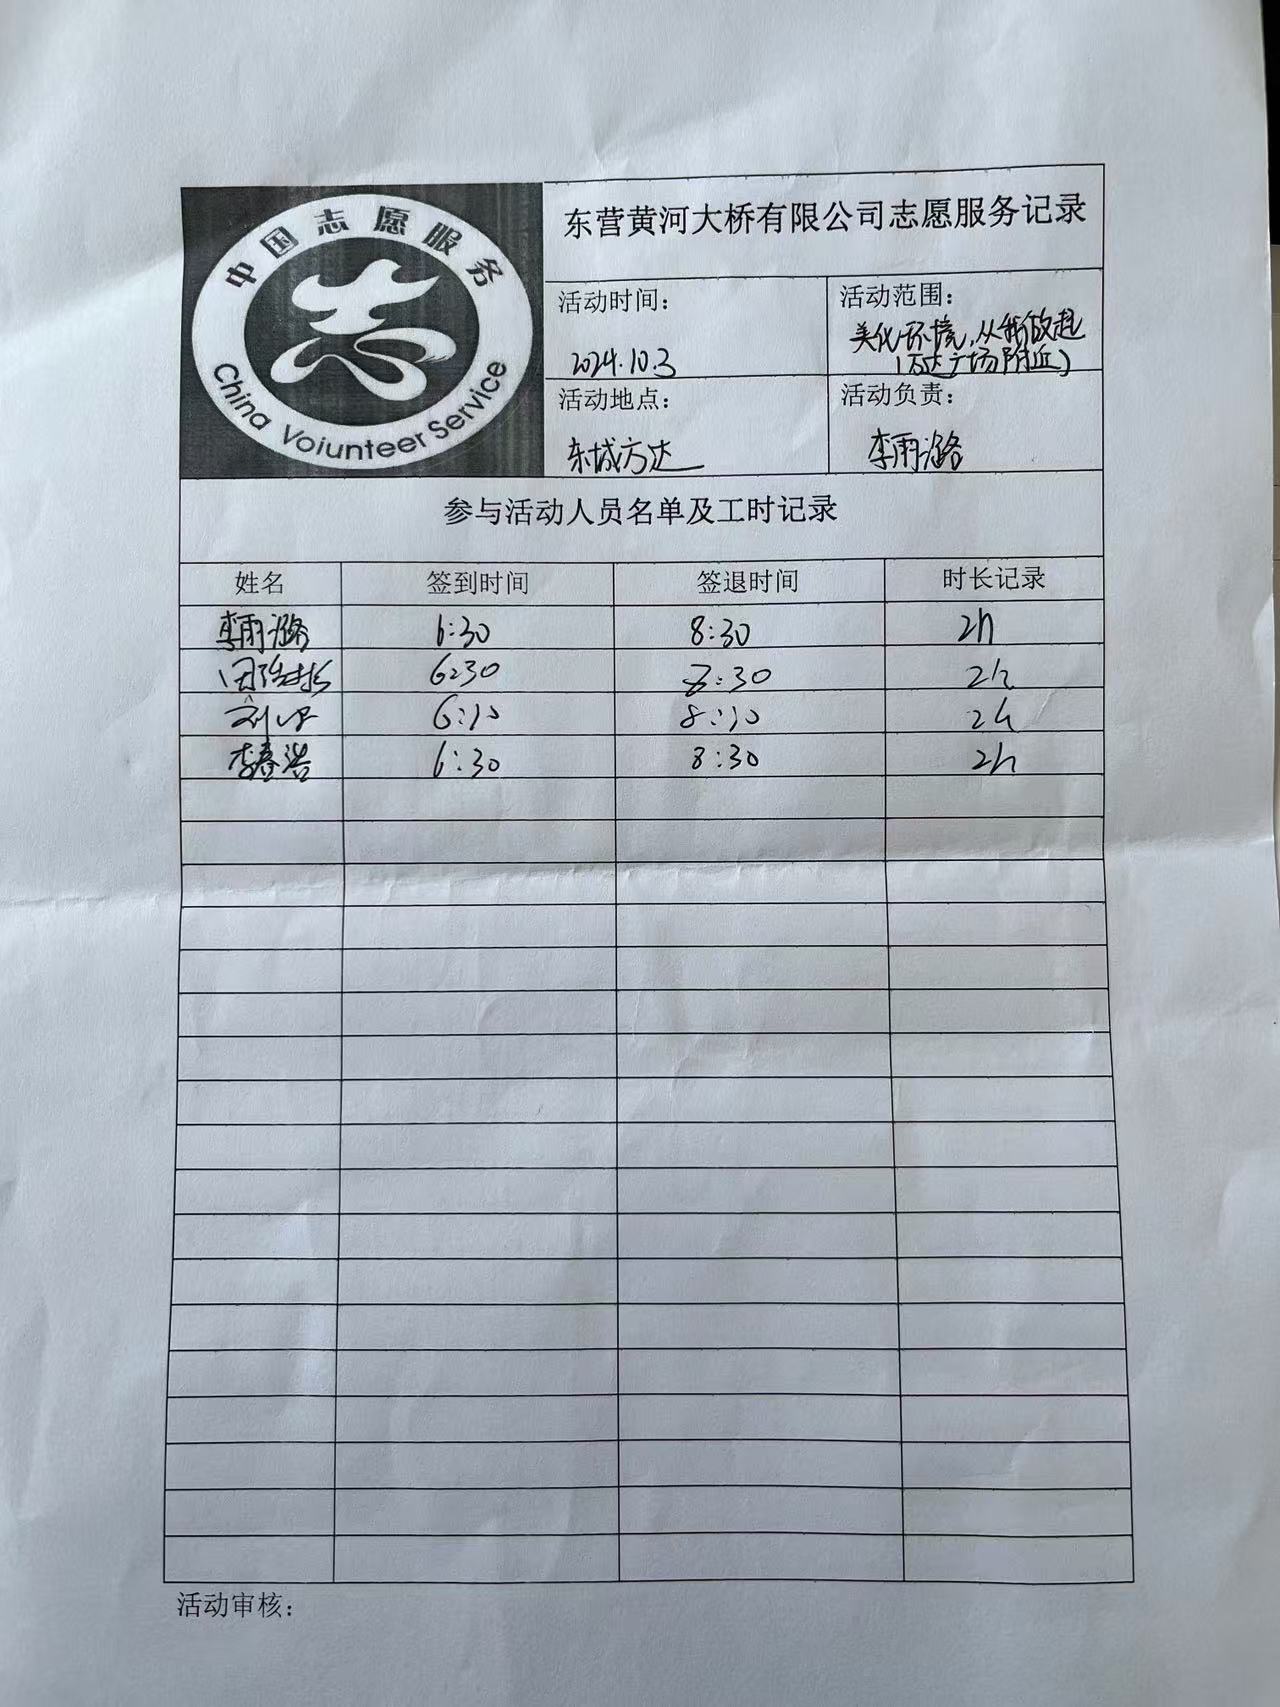 中国志愿服务
China Voiunteer Service
东营黄河大桥有限公司志愿服务记录
活动时间：
2024.10.3
活动范围：
美化环境,从我做起
(万达广场附近)
活动地点：
东城万达
活动负责：
李雨潞
参与活动人员名单及工时记录
姓名 签到时间 签退时间 时长记录
李雨潞 6:30 8:30 2h
6:30 8:30 2h
刘 6:30 8:30 2h
李春浩 6:30 8:30 2h
活动审核：